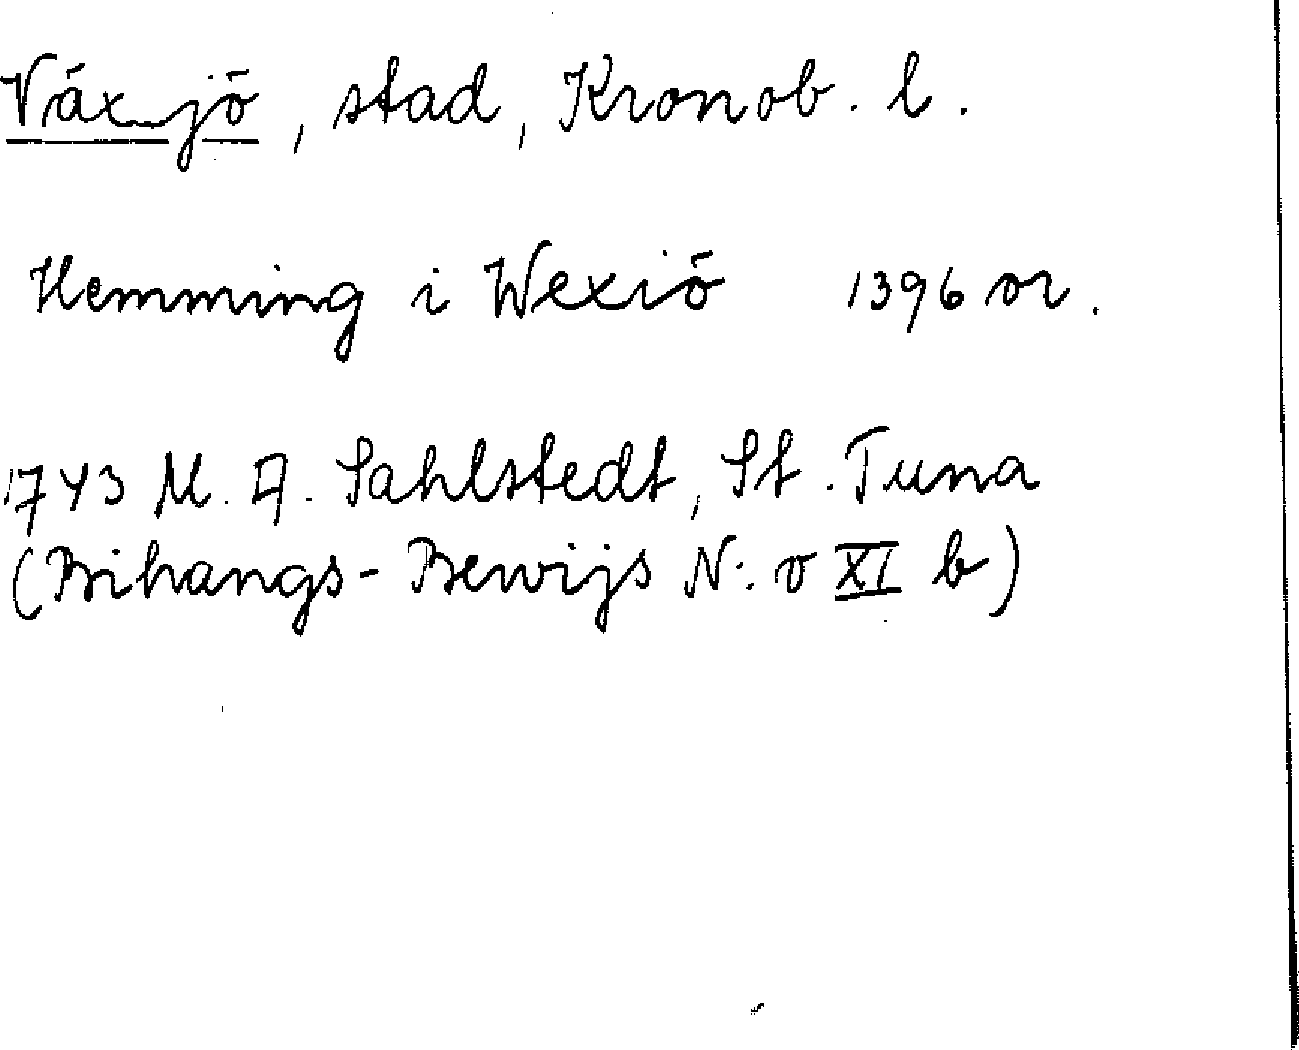 Växjö, stad, Kronob. l.
Hemming i Wexiö 1396 or.
1743 M. A. Sahlstedt, St. Tuna
(Bihangs-Bewijs N:o XI b)